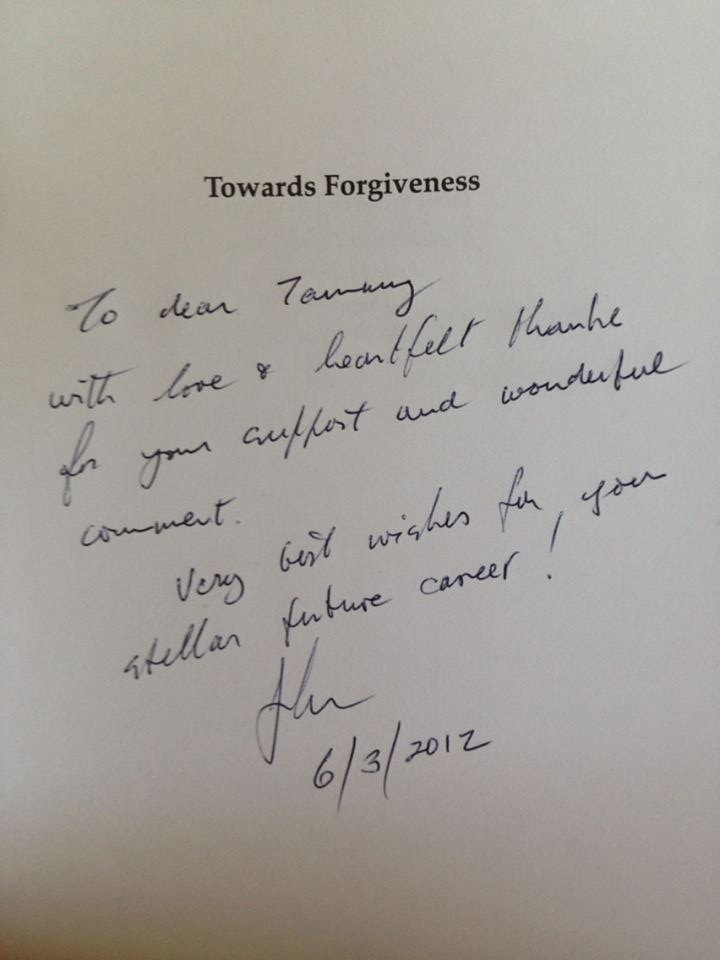 Towards Forgiveness
To dear Tammy
with love & heartfelt thanks
for your support and wonderful
comment.
Very best wishes for your
stellar future career!
6/3/2012